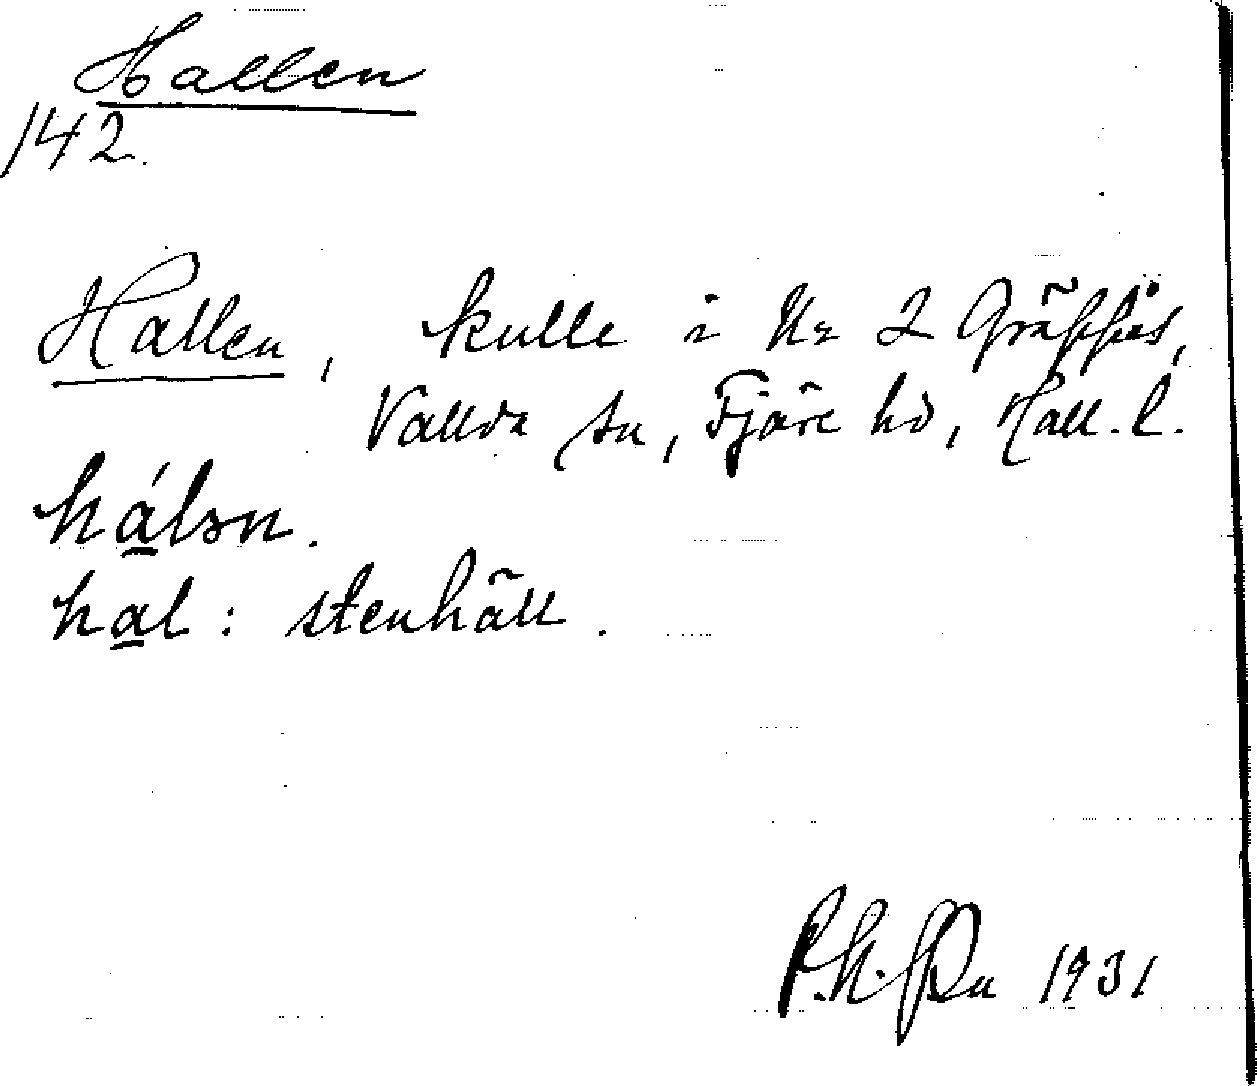 Hallen
142.
Hallen, kulle i Nr 2 Gräppås,
Vallda sn, Fjäre hd, Hall. l.
hálən.
hal : stenhäll.
1931